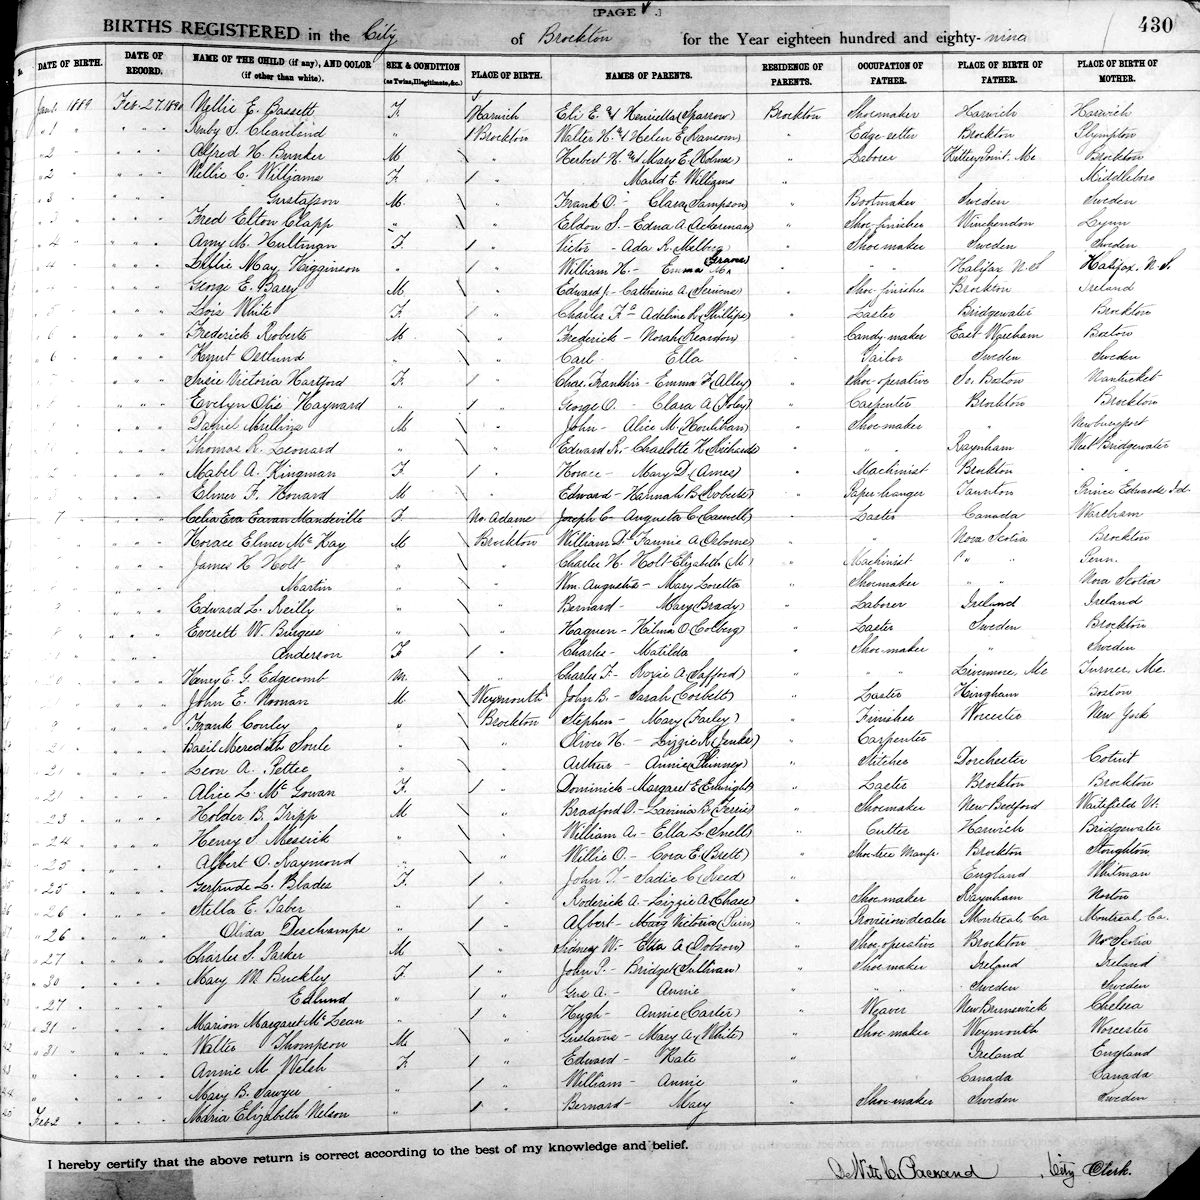 [PAGE .]
430
BIRTHS REGISTERED in the City of Brockton for the Year eighteen hundred and eighty-nine
No. DATE OF BIRTH. DATE OF RECORD. NAME OF THE CHILD (if any), AND COLOR (if other than white). SEX & CONDITION (as Twins, Illegitimate, &c.) PLACE OF BIRTH. NAMES OF PARENTS. RESIDENCE OF PARENTS. OCCUPATION OF FATHER. PLACE OF BIRTH OF FATHER. PLACE OF BIRTH OF MOTHER.
Jan. 1 1889 Feb. 27 1890 Nellie E. Bassett F. Harwich Eli E. & Henrietta (Sparrow) Brockton Shoemaker Harwich Harwich
" 1 " " " Ruby S. Cleaveland " Brockton Walter H. & Helen E. (Ransom) " Edge-setter Brockton Plympton
" 2 " " " Alfred H. Bunker M " Herbert H. & Mary E. (Holmes) " Laborer Kittery Point, Me Brockton
" 2 " " " Nellie C. Williams F. " Maud E. Williams " Middleboro
" 3 " " " Gustafson M. " Frank O. - Clara (Sampson) " Bootmaker Sweden Sweden
" 3 " " " Fred Elton Clapp " " Eldon S. - Edna A (Ackerman) " Shoe-finisher Winchendon Lynn
" 4 " " " Amy M. Hultman F. " Victor - Ada R. Malberg " Shoemaker Sweden Sweden
" 4 " " " Lillie May Higginson " " William H. - Emma M. (Graves) " " " Halifax N. S Halifax, N. S.
" 4 " " " George E. Barry M. " Edward J. - Catharine A. (Scrivens) " Shoe-finisher Brockton Ireland
" 5 " " " Lois White F. " Charles F. - Adeline L. (Phillips) " Laster Bridgewater Brockton
" 6 " " " Frederick Roberts M. " Frederick - Norah (Reardon) " Candy-maker East Wareham Boston
" 6 " " " Knut Ostlund " " Carl Ella " Tailor Sweden Sweden
" " " Susie Victoria Hartford F. " Chas. Franklin - Emma F. (Alley) " Shoe-operative So. Boston Nantucket
" " " Evelyn Otis Hayward " " George O. - Clara A (Foley) " Carpenter Brockton Brockton
" " " Daniel Mullins M " John - Alice M. (Houlihan) " Shoe-maker " Newburyport
" " " Thomas R. Leonard " " Edward R. - Charlotte H. (Richards) " " " Raynham West Bridgewater
" " " Mabel A. Kingman F. " Horace - Mary D. (Ames) " Machinist Brockton " "
" " " Elmer F. Howard M " Edward - Hannah B. (Roberts) " Paper-hanger Taunton Prince Edwards Isd.
7 " " " Celia Eva Mandeville F. No. Adams Joseph C - Augusta C. (Caswell) " Laster Canada Wareham
" " " Horace Elmer McKay M Brockton William D. - Fannie A (Osborne) " " Nova Scotia Brockton
" " " James H. Holt " " Charles H. Holt - Elizabeth (M) " Machinist " " Penn.
" " " Martin " " Wm. Augustus - Mary Loretta " Shoemaker " " Nova Scotia
" " " Edward L. Reilly " " Bernard - Mary (Brady) " Laborer Ireland Ireland
" " " Everett W. Burgess " " Haquen - Hilma O (Colberg) " Laster Sweden Brockton
" " " Anderson F " Charles - Matilda " Shoe-maker " Sweden
" " " Henry E. G. Edgecomb M. " Charles F. - Roxie A (Safford) " " " Livermore, Me Turner, Me.
" " " John E. Noonan M Weymouth John B - Sarah (Corbett) " Laster Hingham Boston
" " " Frank Conley " Brockton Stephen - Mary (Farley) " Finisher Worcester New York
21 " " " Basil Meredith Soule " " Oliver H. - Lizzie R (Jenks) " Carpenter
21 " " " Leon A. Pettee " " Arthur - Annie (Phinney) " Stitcher Dorchester Cotuit
21 " " " Alice L. McGowan F. " Dominick - Margaret E (Enright) " Laster Brockton Brockton
23 " " " Holder B. Tripp M " Bradford D. - Lavinia R. " Shoemaker New Bedford Waitsfield Vt.
24 " " " Henry S. Messick " " William A. - Ella L. (Snell) " Cutter Harwich Bridgewater
25 " " " Albert O. Raymond " " Willie O. - Cora E. (Brett) " Shoe-tree Manfr. Brockton Stoughton
25 " " " Gertrude L. Blades F. " John T. - Sadie C. (Reed) " England Whitman
26 " " " Stella E. Taber " " Roderick A - Lizzie A (Chase) " Shoemaker Raynham Norton
26 " " " Olida Deschamps " " Albert - Mary Victoria " Provision dealer Montreal, Ca Montreal, Ca.
27 " " " Charles S. Parker M " Sidney W. - Etta A (Dobson) " Shoe-operative Brockton No. Scotia
30 " " " Mary M Buckley F. " John P. - Bridget (Sullivan) " Shoe-maker Ireland Ireland
27 " " " Edlund " " Gus A. - Annie " " " Sweden Sweden
31 " " " Marion Margaret McLean " " Hugh - Annie (Carter) " Weaver New Brunswick Chelsea
31 " " " Walter Thompson M " Gustavus - Mary A. (White) " Shoe-maker Weymouth Worcester
" " " Annie M Welsh F. " Edward - Kate " Ireland England
" " " Mary B. Sawyer " " William - Annie " Canada Canada
Feb 2 " " " Maria Elizabeth Nelson " " Bernard - Mary " Shoe-maker Sweden Sweden
I hereby certify that the above return is correct according to the best of my knowledge and belief.
DeWitt C. Packard, City Clerk.